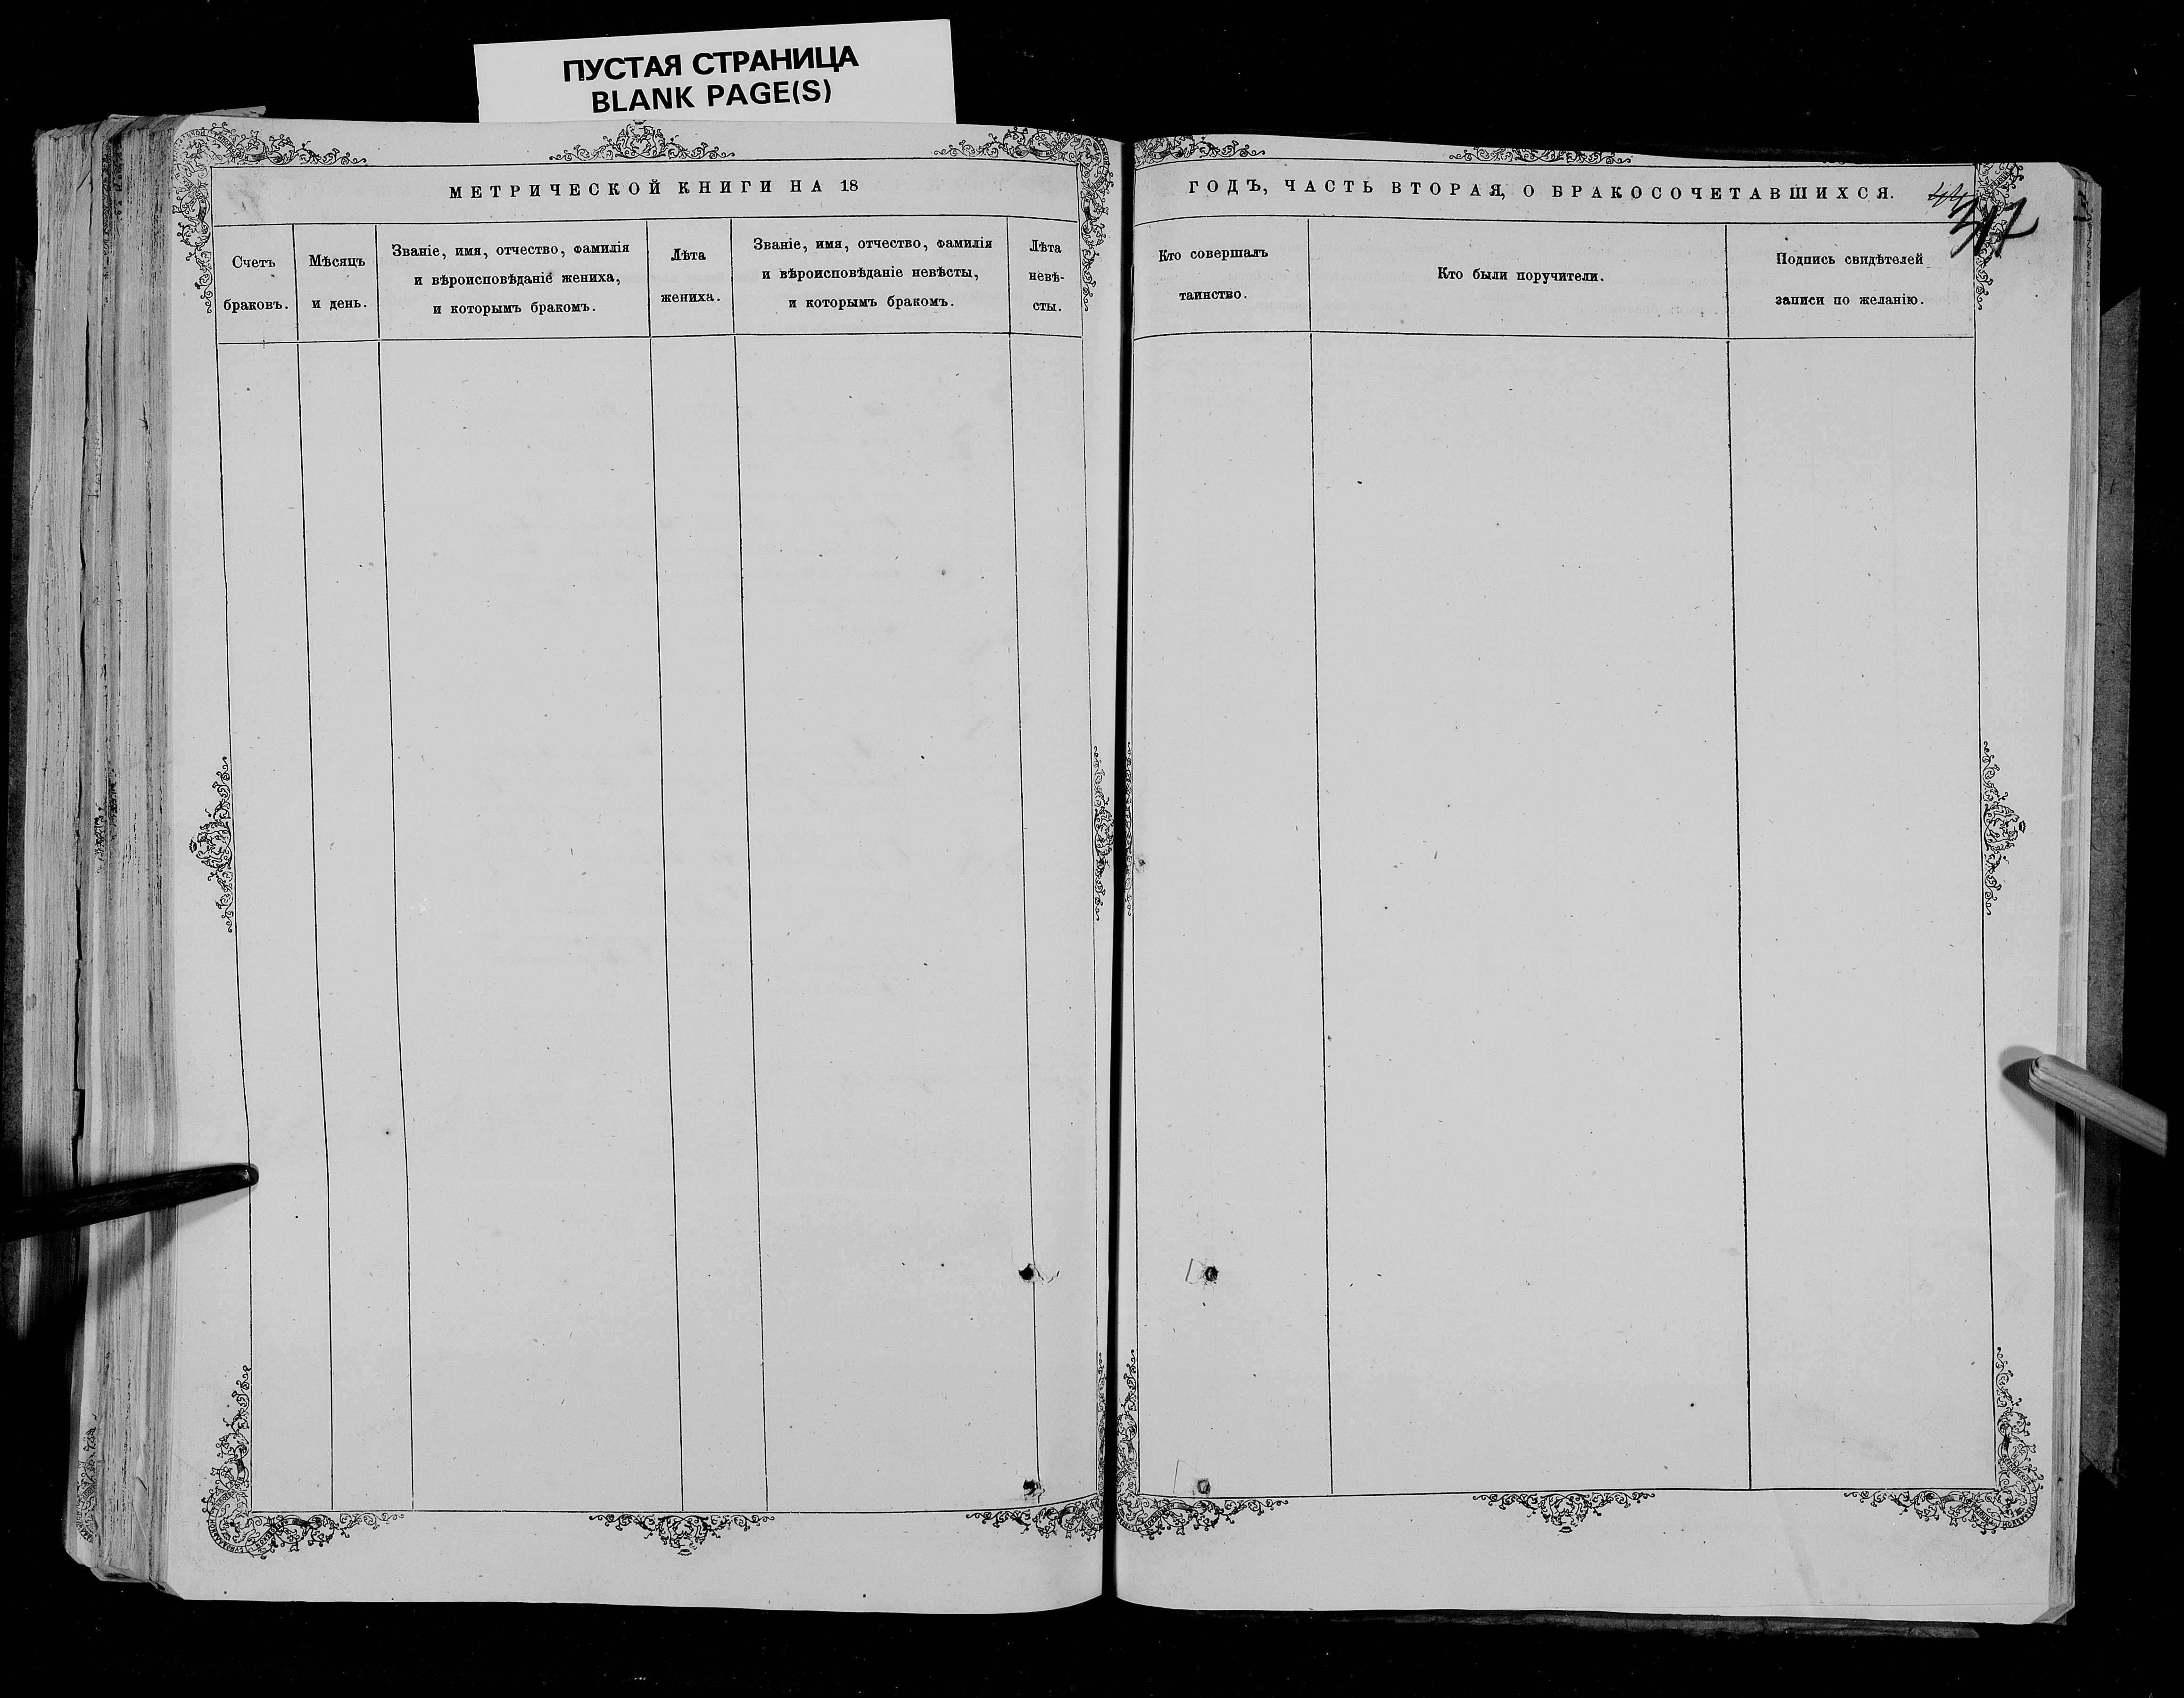 ПУСТАЯ СТРАНИЦА
BLANK PAGE(S)
МЕТРИЧЕСКОЙ КНИГИ НА 18
Счетъ
браковъ.
Мѣсяцъ
и день.
Званіе, имя, отчество, фамилія
и вѣроисповѣданіе жениха,
и которымъ бракомъ.
Лѣта
жениха.
Званіе, имя, отчество, фамилія
и вѣроисповѣданіе невѣсты,
и которымъ бракомъ.
Лѣта
невѣ-
сты.
ГОДЪ, ЧАСТЬ ВТОРАЯ, О БРАКОСОЧЕТАВШИХСЯ.
Кто совершалъ
таинство.
Кто были поручители.
Подпись свидѣтелей
записи по желанію.